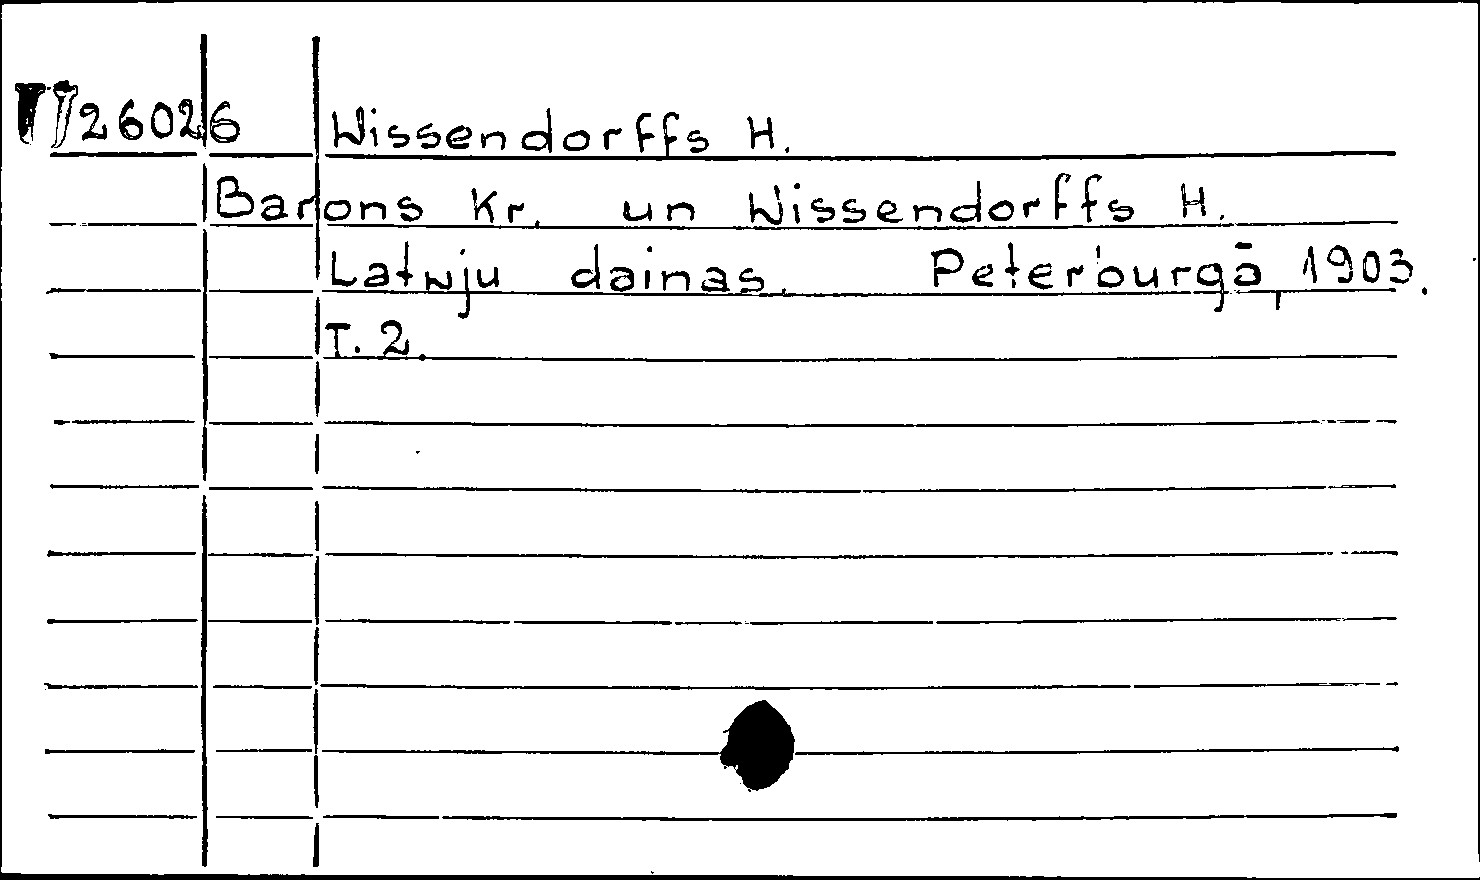 26026 Wissendorffs H.
Barons Kr. un Wissendorffs H.
Latwju dainas. Peterburgā, 1903.
T. 2.